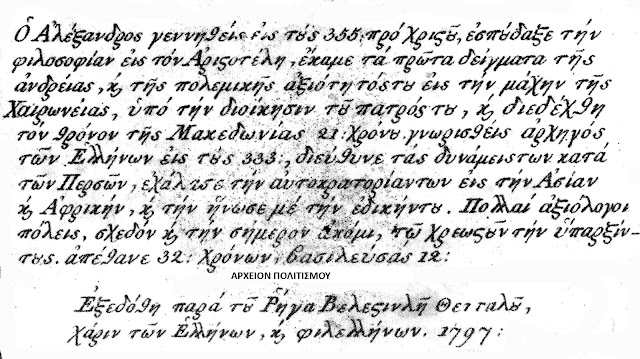 Ὁ Ἀλέξανδρος γεννηθεὶς εἰς τȣ́ς 355 πρό Χριςȣ͂, ἐσπȣ́δαξε τήν
φιλοσοφίαν εἰς τόν Ἀριςοτέλη, ἔκαμε τὰ πρῶτα δείγματα τῆς
ἀνδρείας, ϗ τῆς πολεμικῆς ἀξιότητόςτȣ εἰς τήν μάχην τῆς
Χαιρωνείας, ὑπό τήν διοίκησιν τȣ͂ πατρόςτȣ, ϗ διεδέχθη
τον θρόνον τῆς Μακεδωνίας 21: χρονȣ. γνωρισθεὶς ἀρχηγὸς
τῶν Ἑλλήνων εἰς τȣ́ς 333:, διεύθυνε τάς δυνάμειςτων κατά
τῶν Περσῶν, ἐχάλασε τήν αὐτοκρατορίαντων εἰς τήν Ἀσίαν
ϗ Ἀφρικήν, ϗ τήν ἥνωσε μέ τήν ἐδικήντȣ. Πολλαί ἀξιόλογοι
πόλεις, σχεδόν ϗ τήν σήμερον ἀκόμι, τῷ χρεωςȣ͂ν τήν ὕπαρξίν-
τȣς. ἀπέθανε 32: χρόνων, βασιλεύσας 12:
ΑΡΧΕΙΟΝ ΠΟΛΙΤΙΣΜΟΥ
Ἐξεδόθη παρά τȣ͂ Ῥήγα Βελεςινλῆ Θετταλȣ͂,
χάριν τῶν Ἑλλήνων, ϗ φιλελλήνων. 1797: